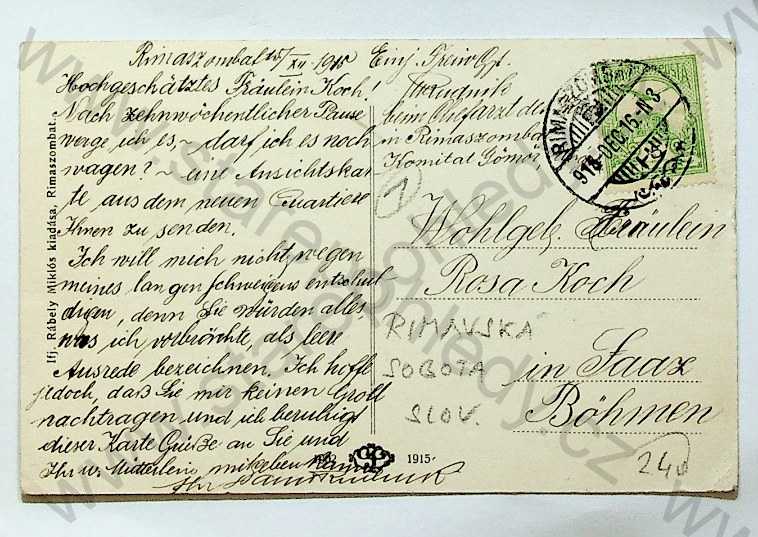 Rimaszombat 15/XII 1915
Hochgeschätztes Fräulein Koch!
Nach zehnwöchentlicher Pause
wage ich es, - darf ich es noch
wagen? - eine Ansichtskar
te aus dem neuen Quartiere
Ihnen zu senden.
Ich will mich nicht wegen
meines langen Schweigens entschul
digen, denn Sie würden alles,
was ich vorbrächte, als leere
Ausrede bezeichnen. Ich hoffe
jedoch, daß Sie mir keinen Groll
nachtragen und ich beruhigt
dieser Karte Grüße an Sie und
Ihr w.
Ihr
Einj. Freiw.
beim Chefarzt
in Rimaszombat
Komitat Gömör
1
Wohlgeb. Fräulein
Rosa Koch
in Saaz
Böhmen
RIMAVSKÁ
SOBOTA
SLOV.
24
Ifj. Rábely Miklós kiadása, Rimaszombat.
1915
RIMASZOMBAT
915 DEC 16 N 3
www.stare-pohledy.cz